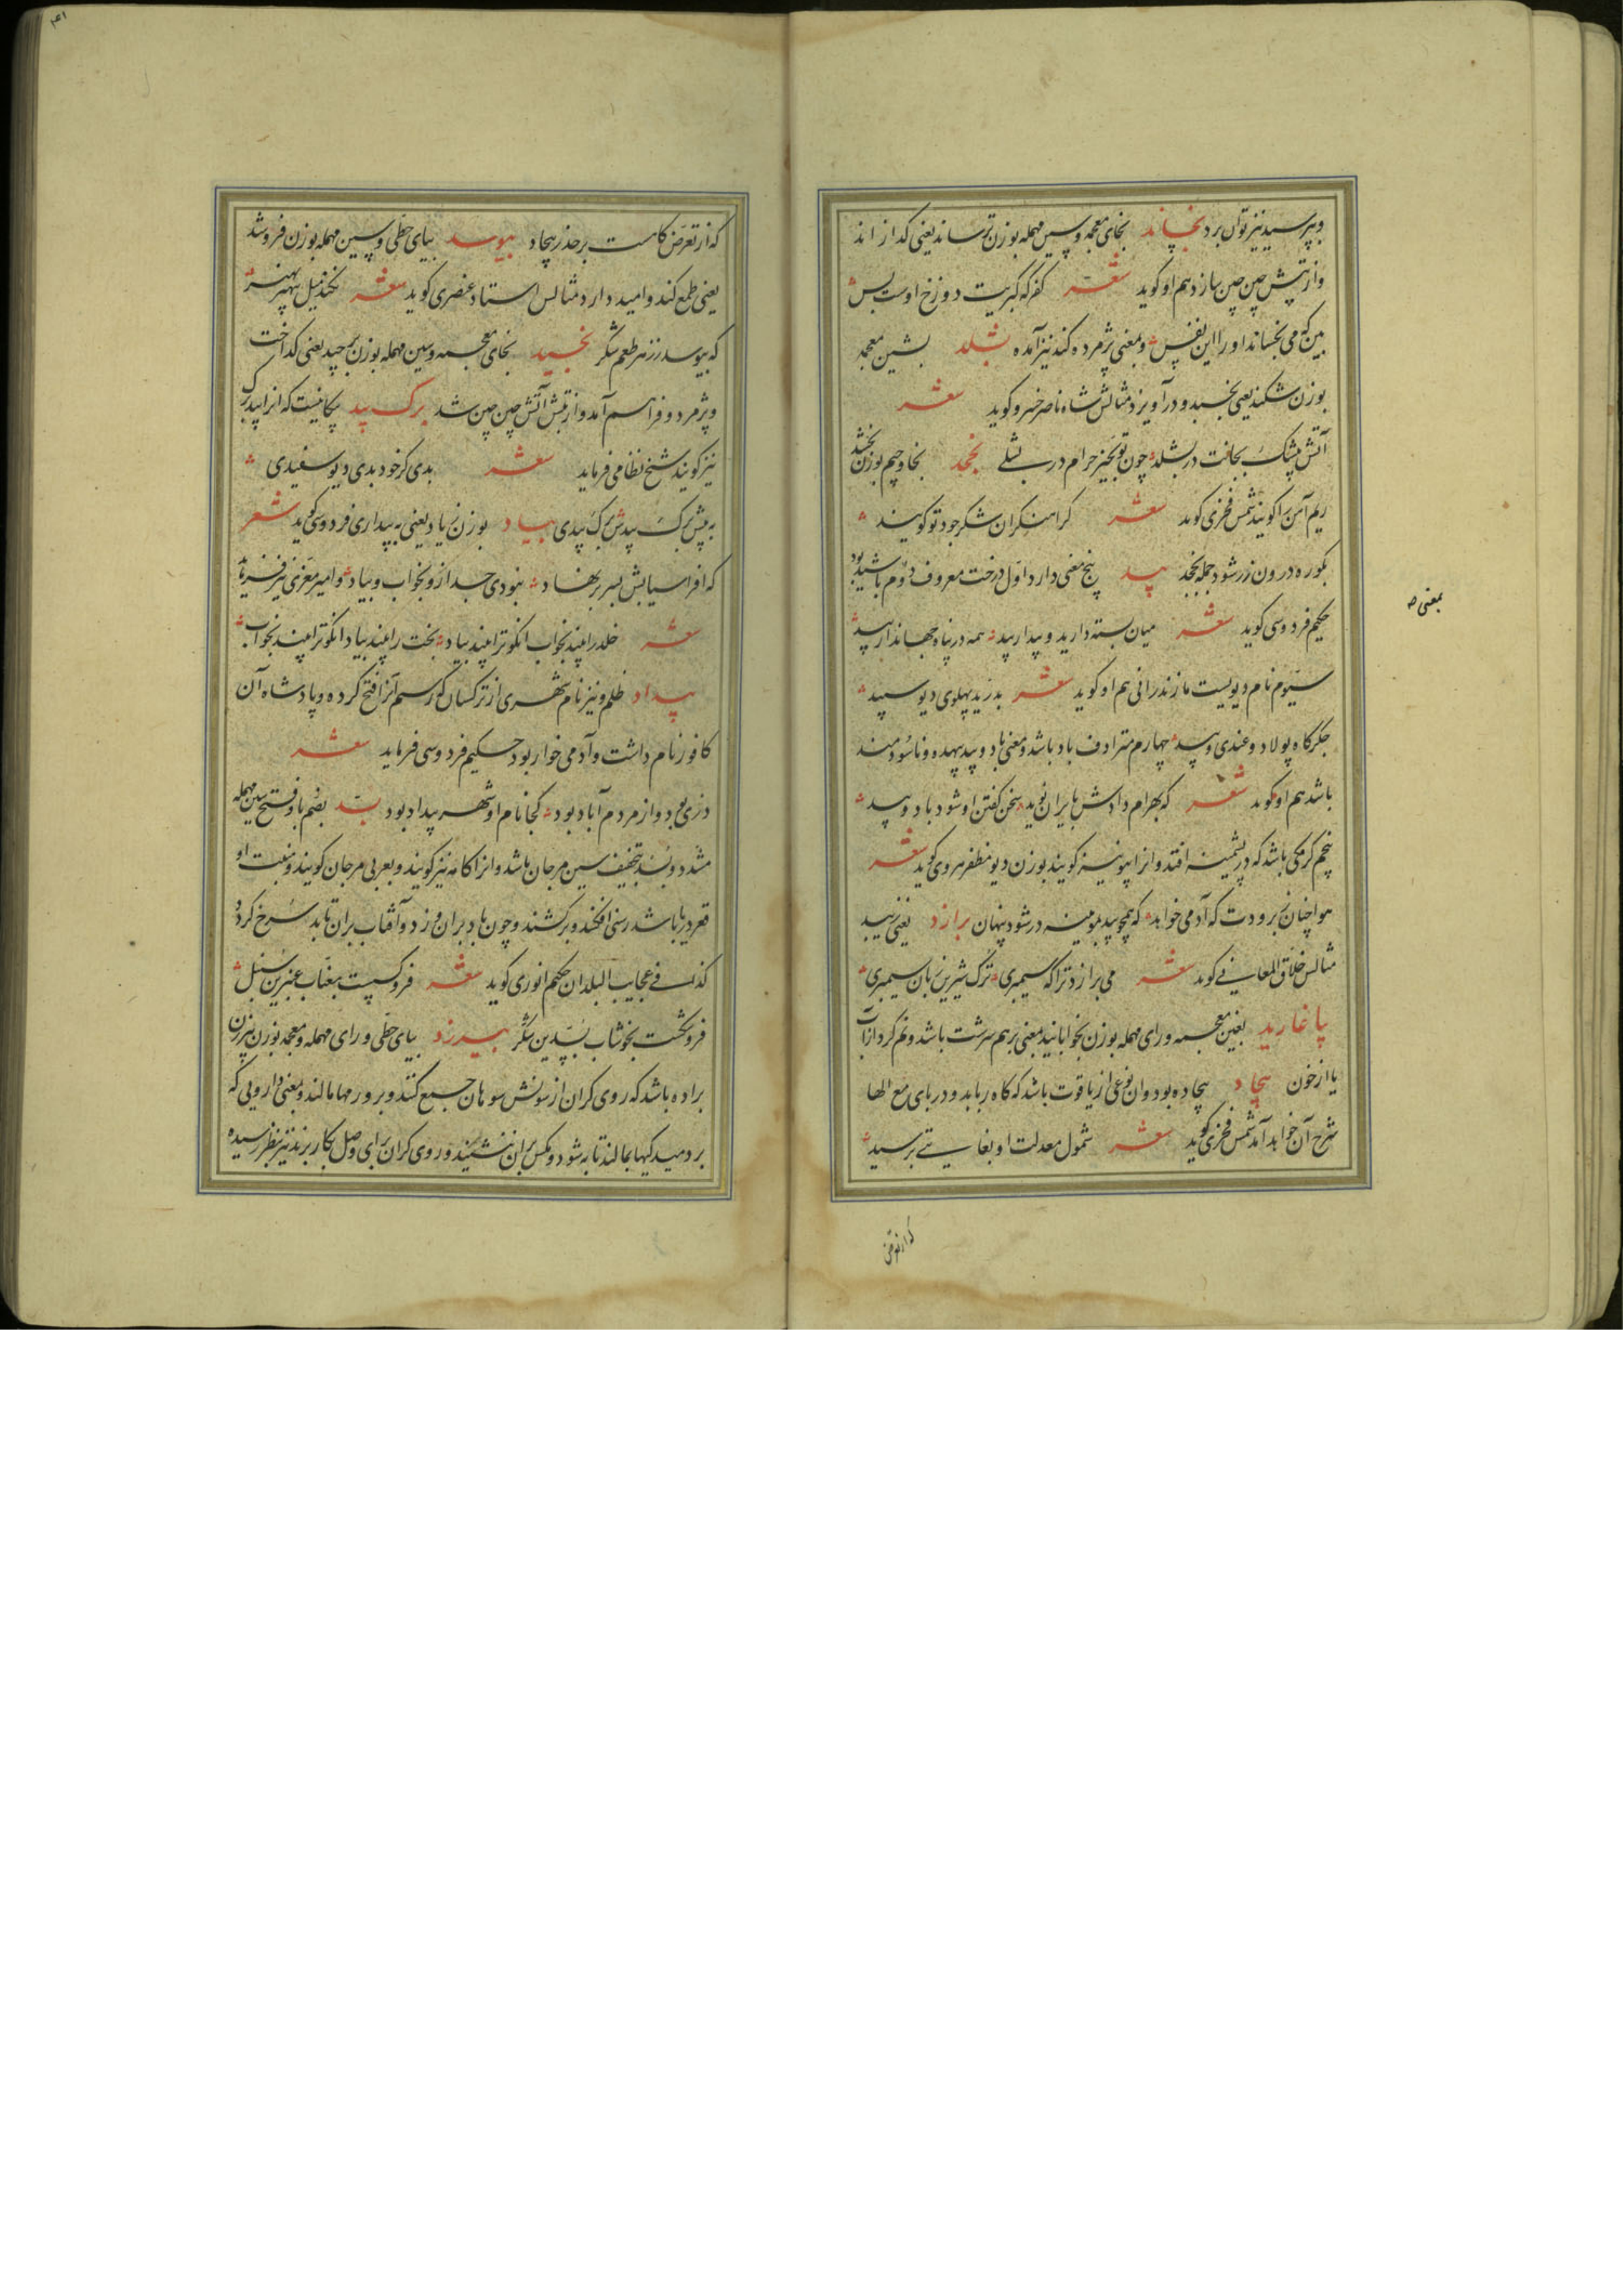 وبپرسید نیز توان برد بخساند بخای معجمه وسین مهمله بوزن ترساند یعنی کدازاند
واز تپش چین چین سازد هم او کوید شعر کفر که کبریت دوزخ اوست بس
بین که می بخساند او را این نفس ومعنی پژمرده کند نیز آمده بشلد بشین معجمه
بوزن شکند یعنی بچسبد و درآویزد مثالش شاه ناصر خسرو کوید شعر
آتش بی شک بجانت در بشلد چون تو بچیز حرام در بشلی بخجد بخا وجیم بوزن بخشد
ریم آهن را کویند شمس فخری کوید شعر کر آهنکران شکر جود تو کویند
بکوره درون زر شود جمله بخجد بید پنج معنی دارد اول درخت معروف دوم باشید بود
حکیم فردوسی کوید شعر میان بسته دارید و بیدار بید همه در پناه جهاندار بید
سیوم نام دیویست مازندرانی هم او کوید شعر بدرید پهلوی دیو سپید
جکرکاه پولاد وغندی وبید چهارم مترادف باد باشد ومعنی باد وبید بیهده وناسودمند
باشد هم او کوید شعر که بهرام دادش بایران نوید سخن کفتن او شود باد وبید
پنجم کرمکی باشد که در پشمینه افتد وانرا بیو نیز کویند بوزن دیو مظفر هروی کوید شعر
هوا چنان ببرودت که آدمی خواهد که همچو بید بموینه در شود پنهان برازد یعنی زیبد
مثالش خلاق المعانی کوید شعر می برازد ترا که سیمبری ترک شیرین زبان سیمبری
پاغارید بغین معجمه ورای مهمله بوزن بخوابانید بمعنی برهم سرشت باشد ونم کرد از آب
یا از خون بیجاد بیجاده بود وان نوعی از یاقوت باشد که کاه رباید ودر بای مع الها
شرح آن خواهد آمد شمس فخری کوید شعر شمول معدلت او بغایتی برسید
بمعنی
که از تعرض
که از تعرض کاهست بر حذر بیجاد بیوسد بیای حطی وسین مهمله بوزن فروشد
یعنی طمع کند وامید دارد مثالش استاد عنصری کوید شعر نکند میل بی هنر بهنر
که بیوسد ز زهر طعم شکر بخسید بخای معجمه وسین مهمله بوزن برچید یعنی کداخت
وپژمرد وفراهم آمد واز تپش آتش چین چین شد برک بید پیکانیست که انرا بید برک
نیز کویند شیخ نظامی فرماید شعر بدی کر خود بدی دیو سفیدی
به پیش برک بیدش برک بیدی ببیاد بوزن زیاد یعنی به بیداری فردوسی کوید شعر
که افراسیابش بسر بر نهاد نبودی جدا زو بخواب وبیاد وامیر معزی نیز فرماید
شعر خلد را بیند بخواب انکو ترا بیند بیاد بخت را بیند بیاد انکو ترا بیند بخواب
بیداد ظلم ونیز نام شهری از ترکستان که رستم آنرا فتح کرده وپادشاه آن
کافور نام داشت وآدمی خوار بود حکیم فردوسی فرماید شعر
دزی بود واز مردم آباد بود کجا نام او شهر بیداد بود بسد بضم با وفتح سین مهمله
مشدد وبسد بتخفیف سین مرجان باشد وانرا کامه نیز کویند وبعربی مرجان کویند ومنبت او
قعر دریا باشد رسنی افکنند وبر کشند وچون باد بران وزد وآفتاب بران تابد سرخ کردد
کذا فی عجایب البلدان حکیم انوری کوید شعر فروکسست بعناب عنبرین سنبل
فروشکست بخوشاب بسدین شکر بیرزد بیای حطی ورای مهمله ومعجمه بوزن
براده باشد که روی کران از سونش سوهان جمع کنند وبر ورمها مالند وبمعنی دارویی که
بر دمیدکیها بمالند تا به شود ومکس بران ننشیند وروی کران برای وصل بکار برند نیز بنظر رسیده